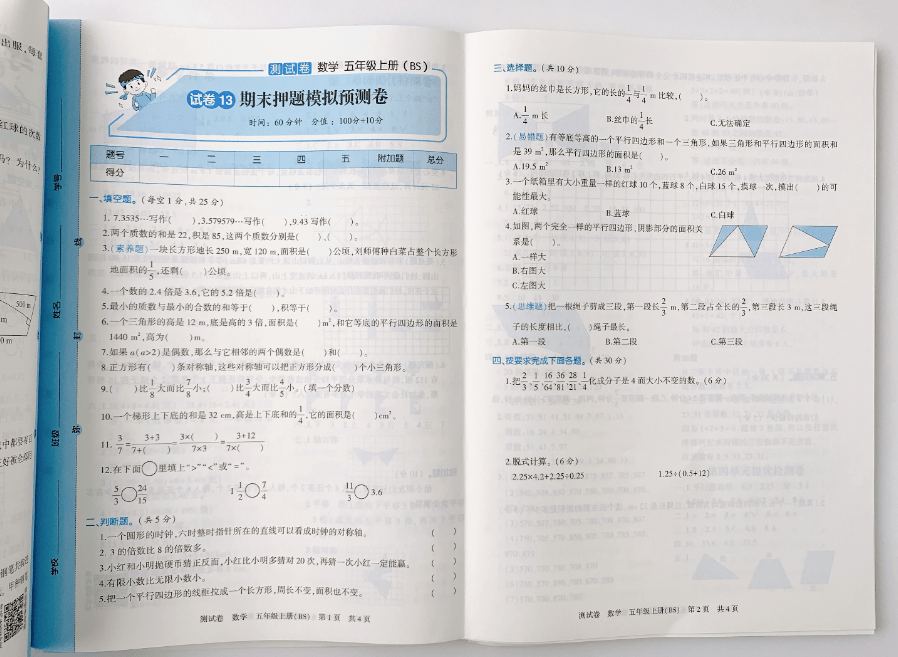 出出服,每套
红球的次数
吗? 为什么?
500 m
学号
姓名
班级
学校
线
订
装
测试卷 数学 五年级上册(BS)
试卷 13 期末押题模拟预测卷
时间:60分钟 分值:100分+10分
题号 一 二 三 四 五 附加题 总分
得分
一、填空题。(每空1分,共25分)
1. 7.3535…写作( ),3.579579…写作( ),9.43写作( )。
2.两个质数的和是22,积是85,这两个质数分别是( )、( )。
3.(素养题)一块长方形地长250 m,宽120 m,面积是( )公顷,刘师傅种白菜占整个长方形
地面积的1/5,还剩( )公顷。
4.一个数的2.4倍是3.6,它的5.2倍是( )。
5.最小的质数与最小的合数的和等于( ),积等于( )。
6.一个三角形的高是12 m,底是高的3倍,面积是( )m²,和它等底的平行四边形的面积是
1440 m²,高为( )m。
7.如果a(a>2)是偶数,那么与它相邻的两个偶数是( )和( )。
8.正方形有( )条对称轴,这些对称轴可以把正方形分成( )个小三角形。
9.( )比1/8大而比7/8小;( )比3/4大而比4/5小。(填一个分数)
10.一个梯形上下底的和是32 cm,高是上下底和的1/4,它的面积是( )cm²。
11. 3/7=(3+3)/(7+( ))=(3×( ))/(7×3)=(3+12)/(7×( ))
12.在下面○里填上“>”“<”或“=”。
5/3○24/15 1 1/2○7/4 11/3○3.6
二、判断题。(共5分)
1.一个圆形的时钟,六时整时指针所在的直线可以看成时钟的对称轴。 ( )
2. 3的倍数比8的倍数多。 ( )
3.小红和小明抛硬币猜正反面,小红比小明多猜对20次,再猜一次小红一定能赢。 ( )
4.有限小数比无限小数小。 ( )
5.把一个平行四边形的线框拉成一个长方形,周长不变,面积也不变。 ( )
测试卷 数学 五年级上册(BS) 第1页 共4页
三、选择题。(共10分)
1.妈妈的丝巾是长方形,它的长的1/4与1/4 m比较,( )。
A.1/4 m长 B.丝巾的1/4长 C.无法确定
2.(易错题)有等底等高的一个平行四边形和一个三角形,如果三角形和平行四边形的面积和
是39 m²,那么平行四边形的面积是( )。
A.19.5 m² B.13 m² C.26 m²
3.一个纸箱里有大小重量一样的红球10个,蓝球8个,白球15个,摸球一次,摸出( )的可
能性最大。
A.红球 B.蓝球 C.白球
4.如图,两个完全一样的平行四边形,阴影部分的面积关
系是( )。
A.一样大
B.右图大
C.左图大
5.(思维题)把一根绳子剪成三段,第一段长2/3 m,第二段占全长的2/3,第三段长3 m,这三段绳
子的长度相比,( )绳子最长。
A.第一段 B.第二段 C.第三段
四、按要求完成下面各题。(共30分)
1.把2/3、1/5、16/64、36/81、28/21、1/4化成分子是4而大小不变的数。(6分)
2.脱式计算。(6分)
2.25×4.2+2.25÷0.25 1.25÷(0.5+12)
测试卷 数学 五年级上册(BS) 第2页 共4页